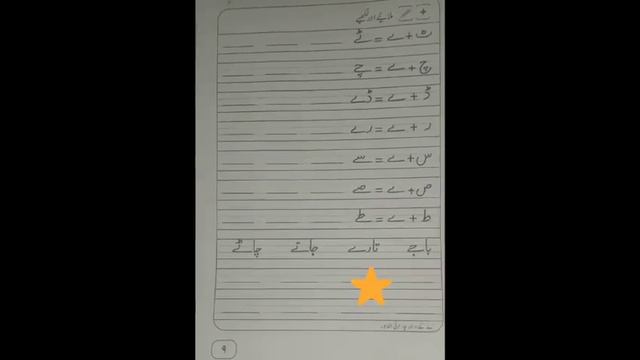 ملائیے اور لکھیے
ٹ + ے = ٹے
چ + ے = چے
ڈ + ے = ڈے
ر + ے = رے
س + ے = سے
ص + ے = صے
ط + ے = طے
باجے تارے جاتے چاٹے
۹